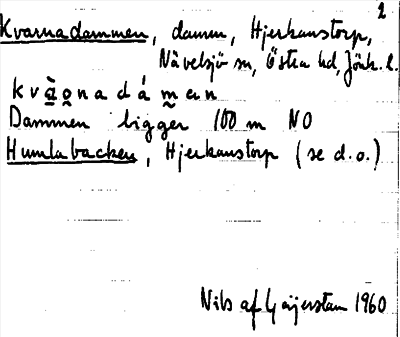 2
Kvarnadammen, damm, Hjerkanstorp,
Nävelsjö sn, Östra hd, Jönk. l.
kvàọnadámən
Dammen ligger 100 m NO
Humlabacken, Hjerkanstorp (se d.o.)
Nils af Geijerstam 1960